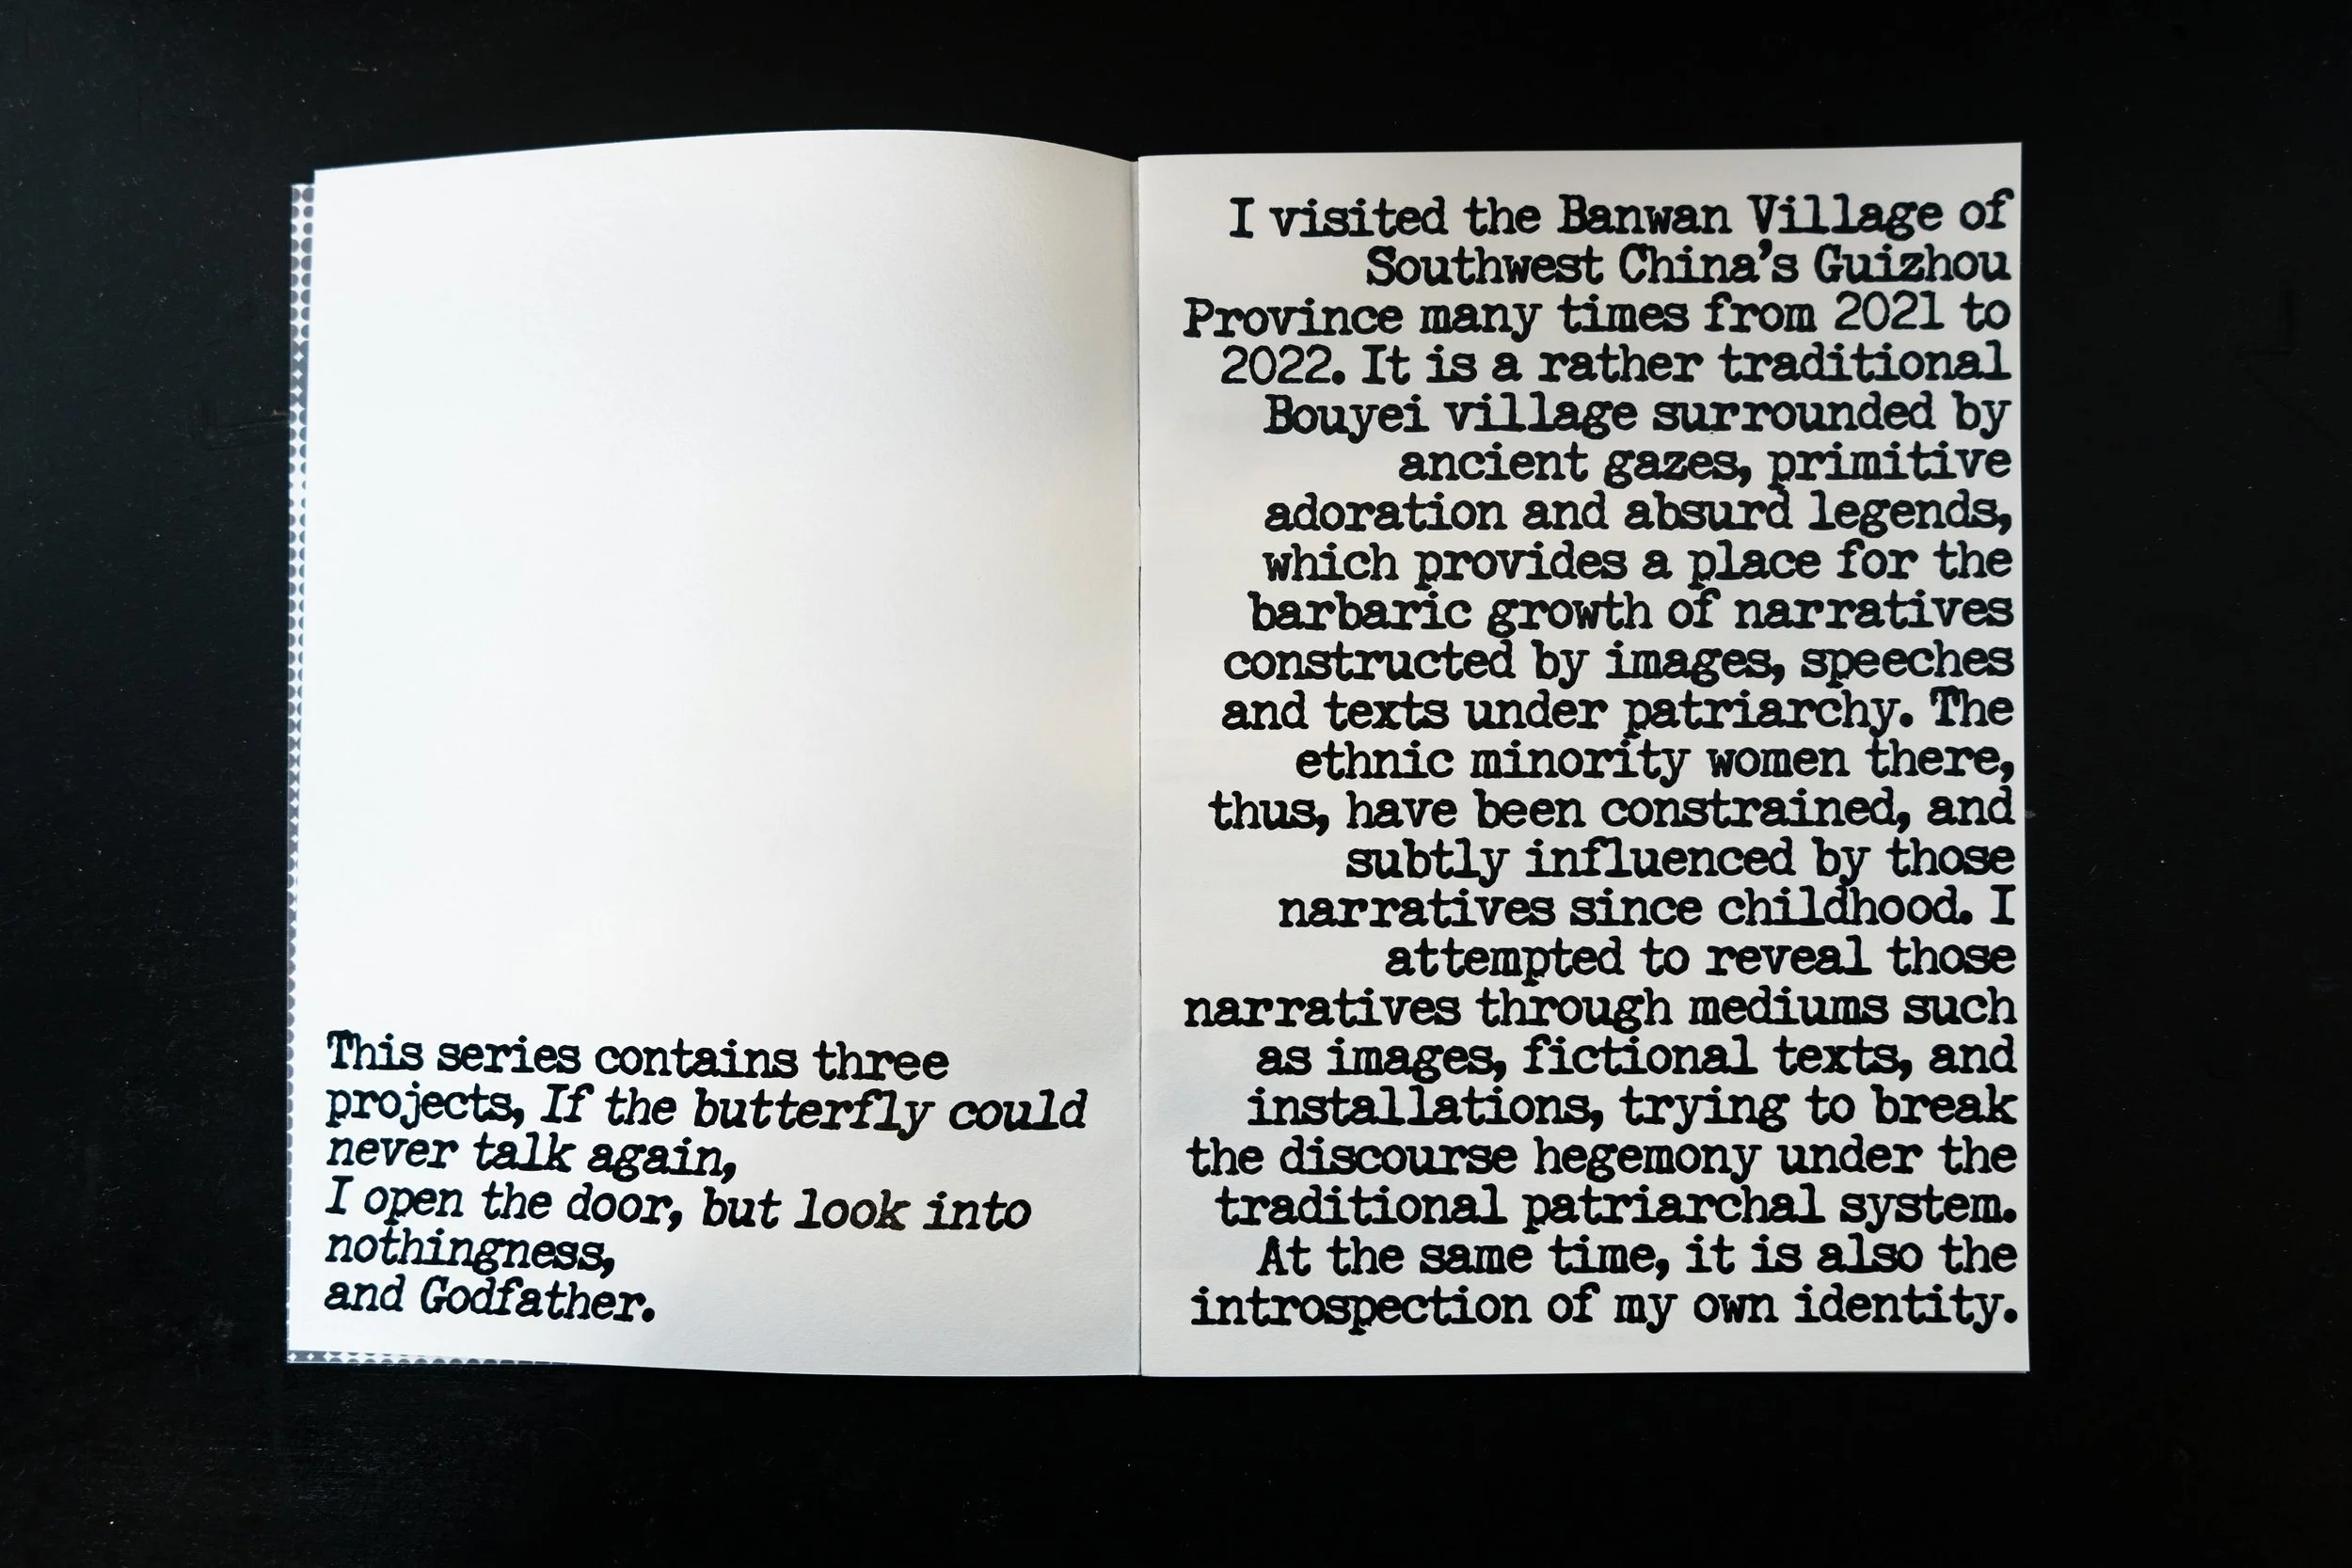 This series contains three
projects, If the butterfly could
never talk again,
I open the door, but look into
nothingness,
and Godfather.
I visited the Banwan Village of
Southwest China's Guizhou
Province many times from 2021 to
2022. It is a rather traditional
Bouyei village surrounded by
ancient gazes, primitive
adoration and absurd legends,
which provides a place for the
barbaric growth of narratives
constructed by images, speeches
and texts under patriarchy. The
ethnic minority women there,
thus, have been constrained, and
subtly influenced by those
narratives since childhood. I
attempted to reveal those
narratives through mediums such
as images, fictional texts, and
installations, trying to break
the discourse hegemony under the
traditional patriarchal system.
At the same time, it is also the
introspection of my own identity.